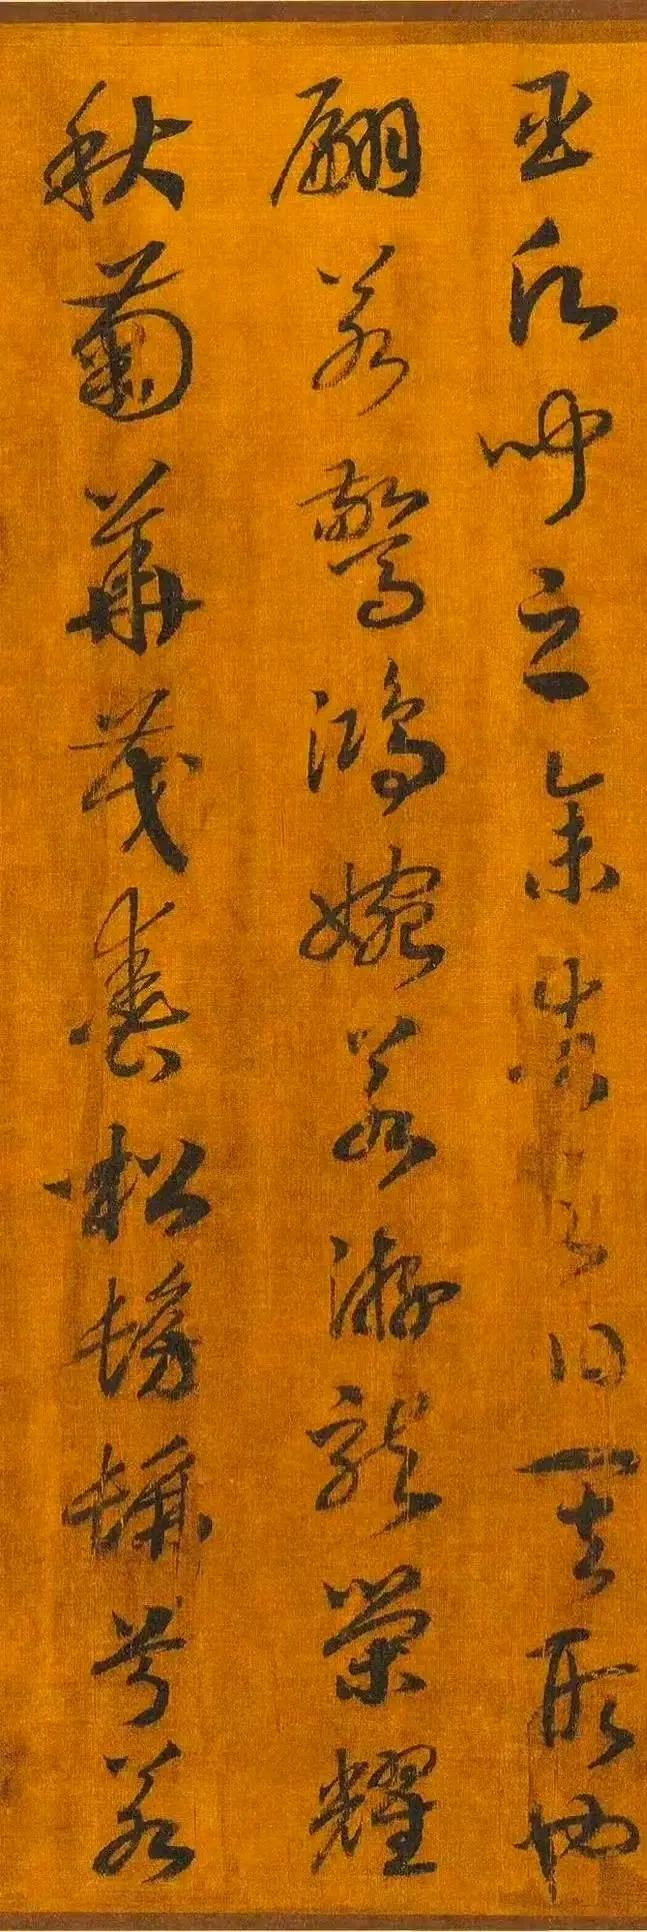 臣願聞之余告之曰其形也
翩若驚鴻婉若游龍榮耀
秋菊華茂春松髣髴兮若